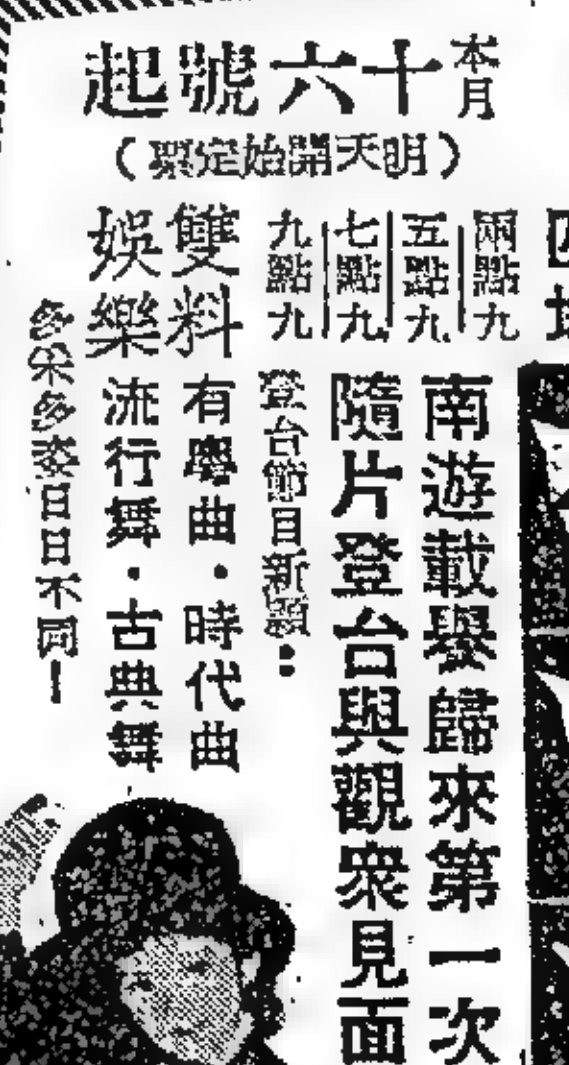 本月十六號起
（明天開始定票）
兩點九
五點九
七點九
九點九
南遊載譽歸來第一次
隨片登台與觀衆見面
登台節目新穎：
雙料娛樂
有粵曲·時代曲
流行舞·古典舞
多采多姿日日不同！